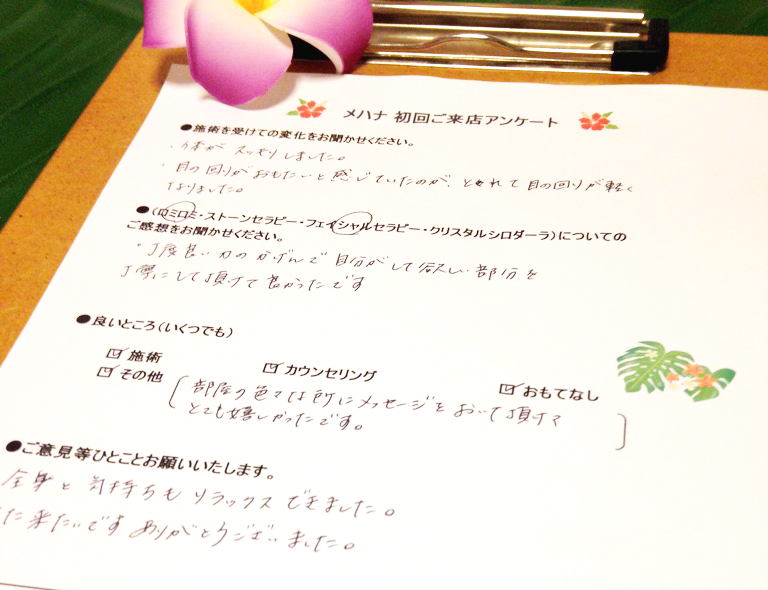 メハナ 初回ご来店アンケート
●施術を受けての変化をお聞かせください。
・体が スッキリ しました。
・目の回りがおもたいと感じていたのが、とれて目の回りが軽く
なりました。
●(ロミロミ・ストーンセラピー・フェイシャルセラピー・クリスタルシロダーラ)についての
ご感想をお聞かせください。
・丁度良い力のかげんで自分がして欲しい部分を
丁寧にして頂けて良かったです
●良いところ(いくつでも)
☑施術 ☑カウンセリング ☑おもてなし
☑その他 〔部屋の色々な所にメッセージをおいて頂けて
とても嬉しかったです。〕
●ご意見等ひとことお願いいたします。
全身と気持ちもリラックスできました。
た来たいです ありがとうございました。